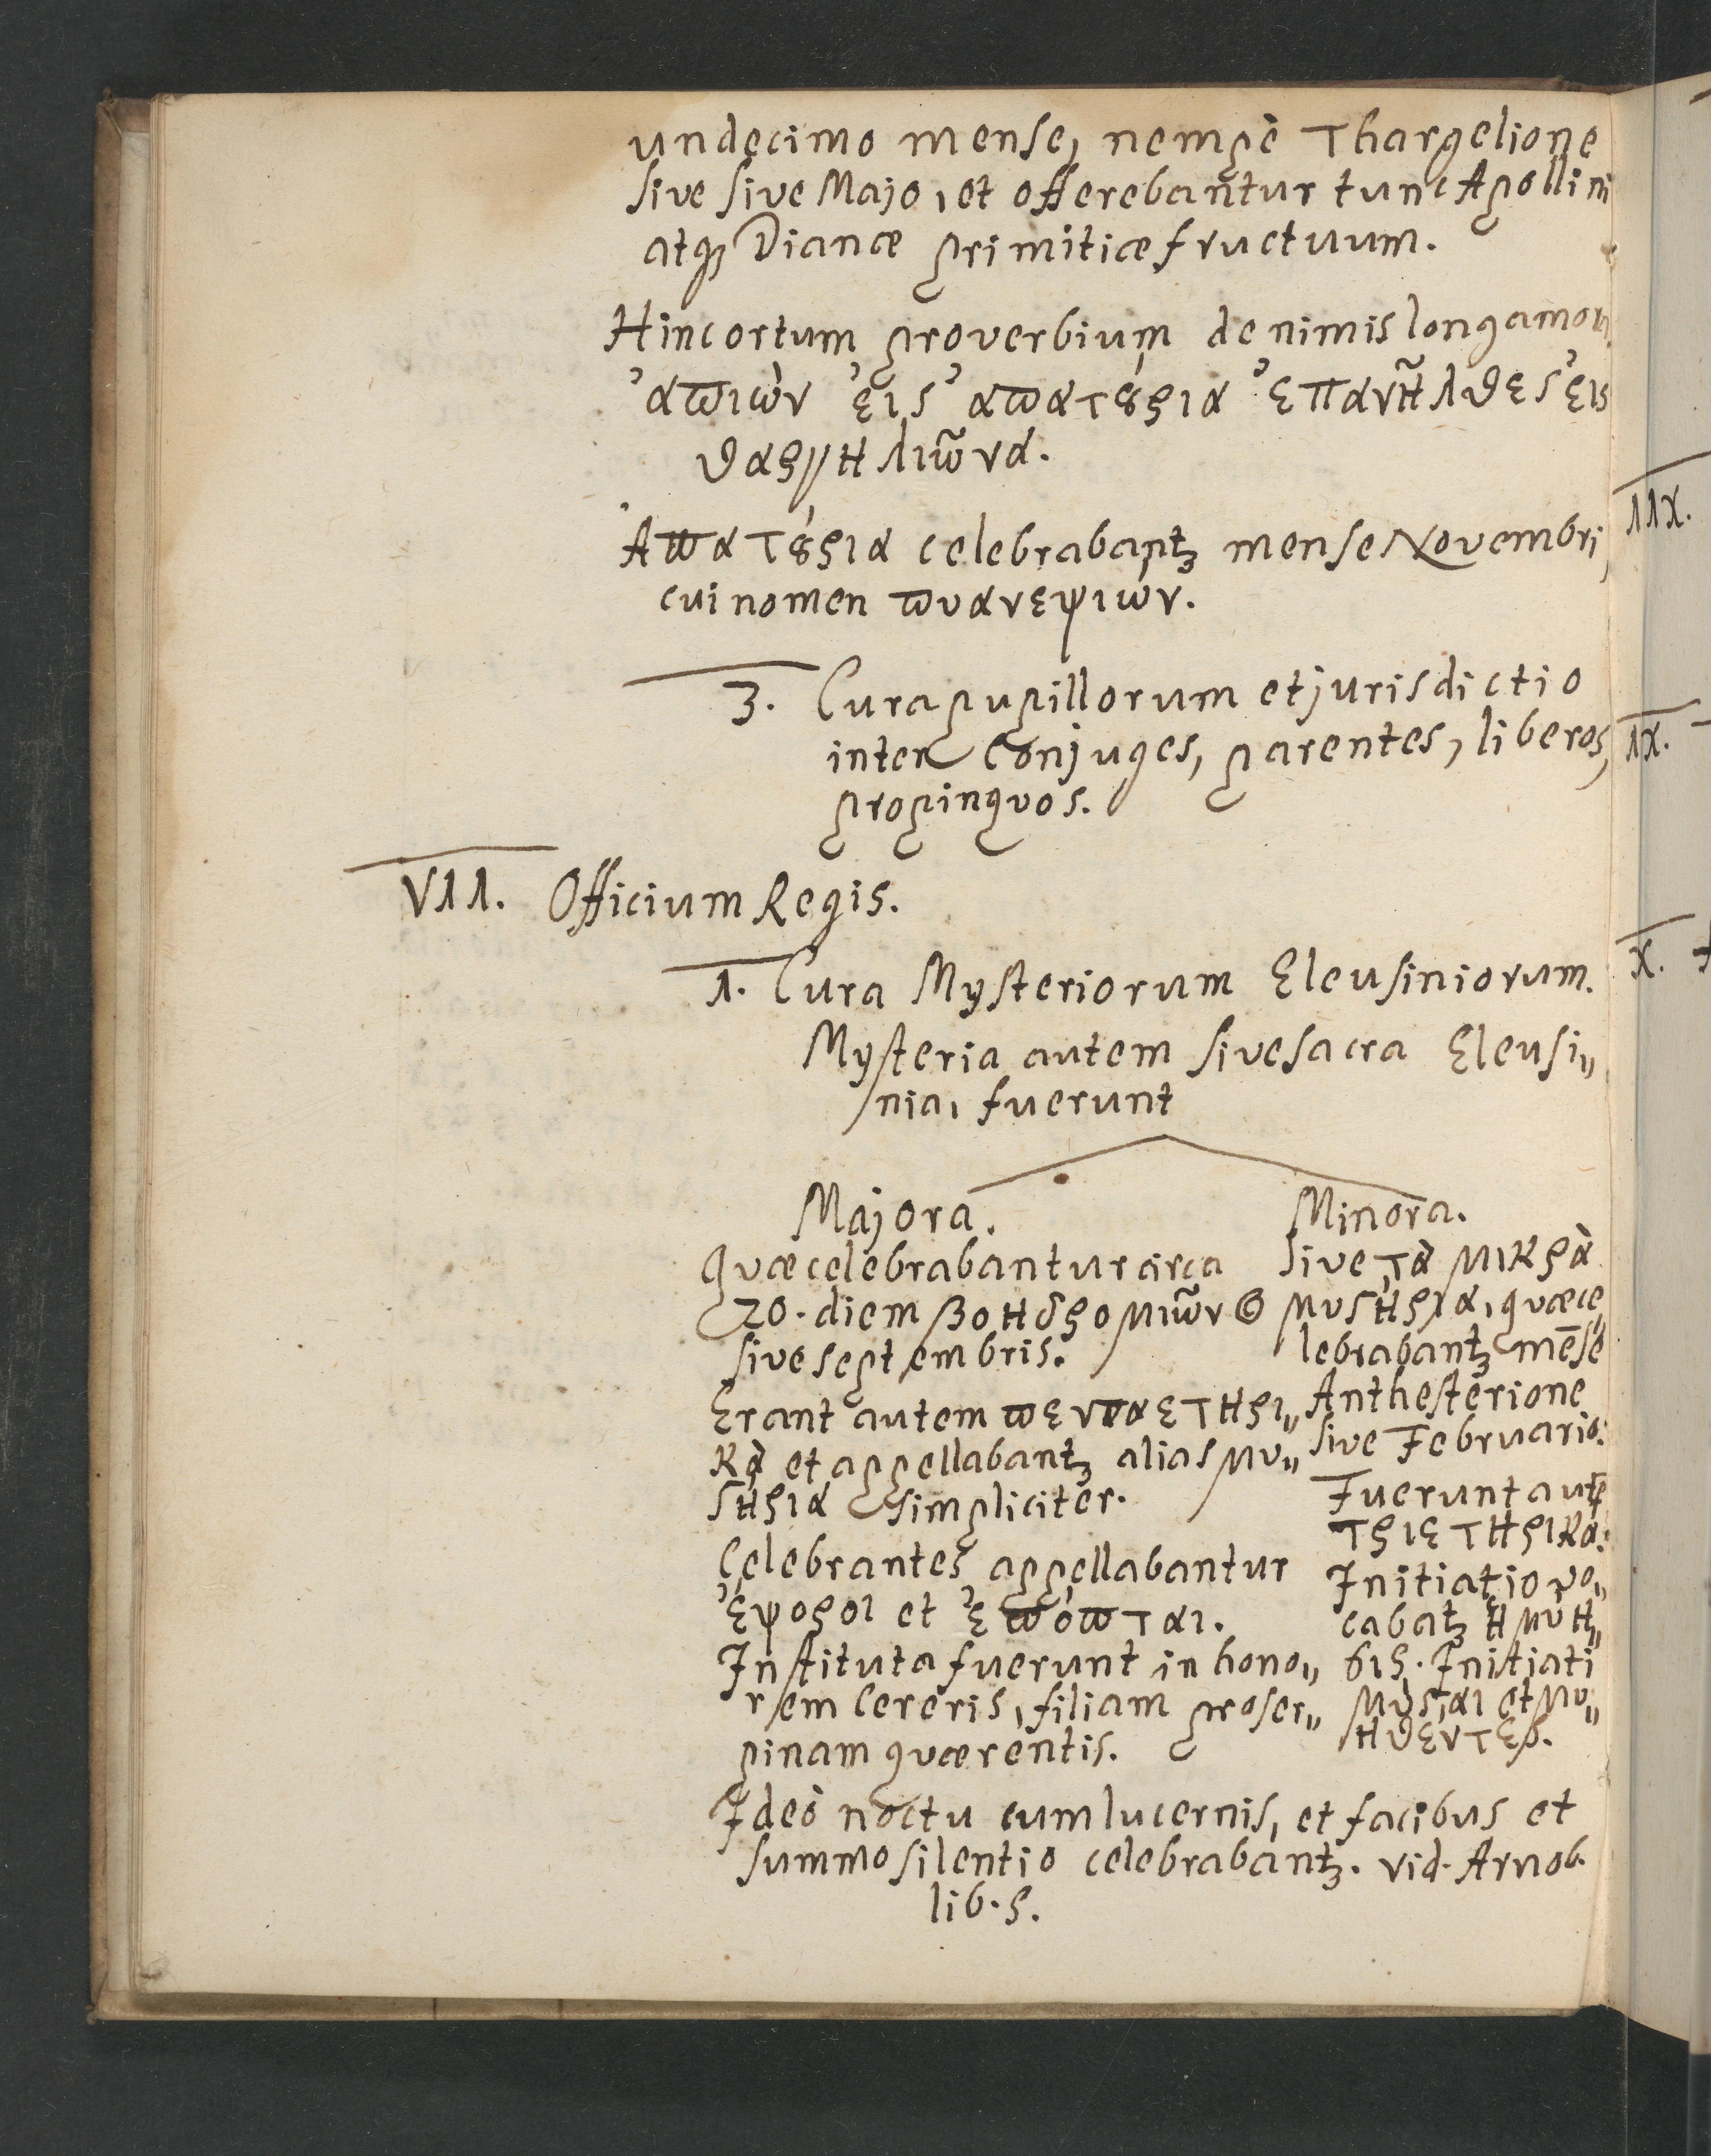 undecimo mense, nempè Thargelione
sive sive Majo, et offerebantur tunc Apollini
atq; Dianæ primitiæ fructuum.
Hinc ortum proverbium de nimis longa mora
ἀπιὼν εἰς ἀπατȣ́ρια ἐπανῆλθες εἰς
θαργηλιῶνα.
Ἀπατȣ́ρια celebrabantꝫ mense Novembri,
cui nomen πυανεψιών.
3. Cura pupillorum et jurisdictio
inter Conjuges, parentes, liberos,
propinquos.
VII. Officium Regis.
1. Cura Mysteriorum Eleusiniorum.
Mysteria autem sive sacra Eleusi„
nia, fuerunt
Majora.
Quæ celebrabantur circa
20. diem βοηδρομιῶνος
sive septembris.
Erant autem πενταετηρι„
κὰ et appellabantꝫ alias μυ„
ϛήρια simpliciter.
Celebrantes appellabantur
ἔψοροι et ἐπόπται.
Instituta fuerunt in hono„
rem Cereris, filiam proser„
pinam quærentis.
Minora.
sive τὰ μικρὰ
μυϛήρια, quæ ce„
lebrabantꝫ mēse
Anthesterione
sive Februario.
Fuerunt autē
τριετηρικά.
Initiatio vo„
cabatꝫ ἡ μύη„
σις. Initiati
μύϛαι et μυ„
ηθέντες.
Ideò noctu cum lucernis, et facibus et
summo silentio celebrabantꝫ. vid. Arnob.
lib. 5.
IIX.
IX.
X.